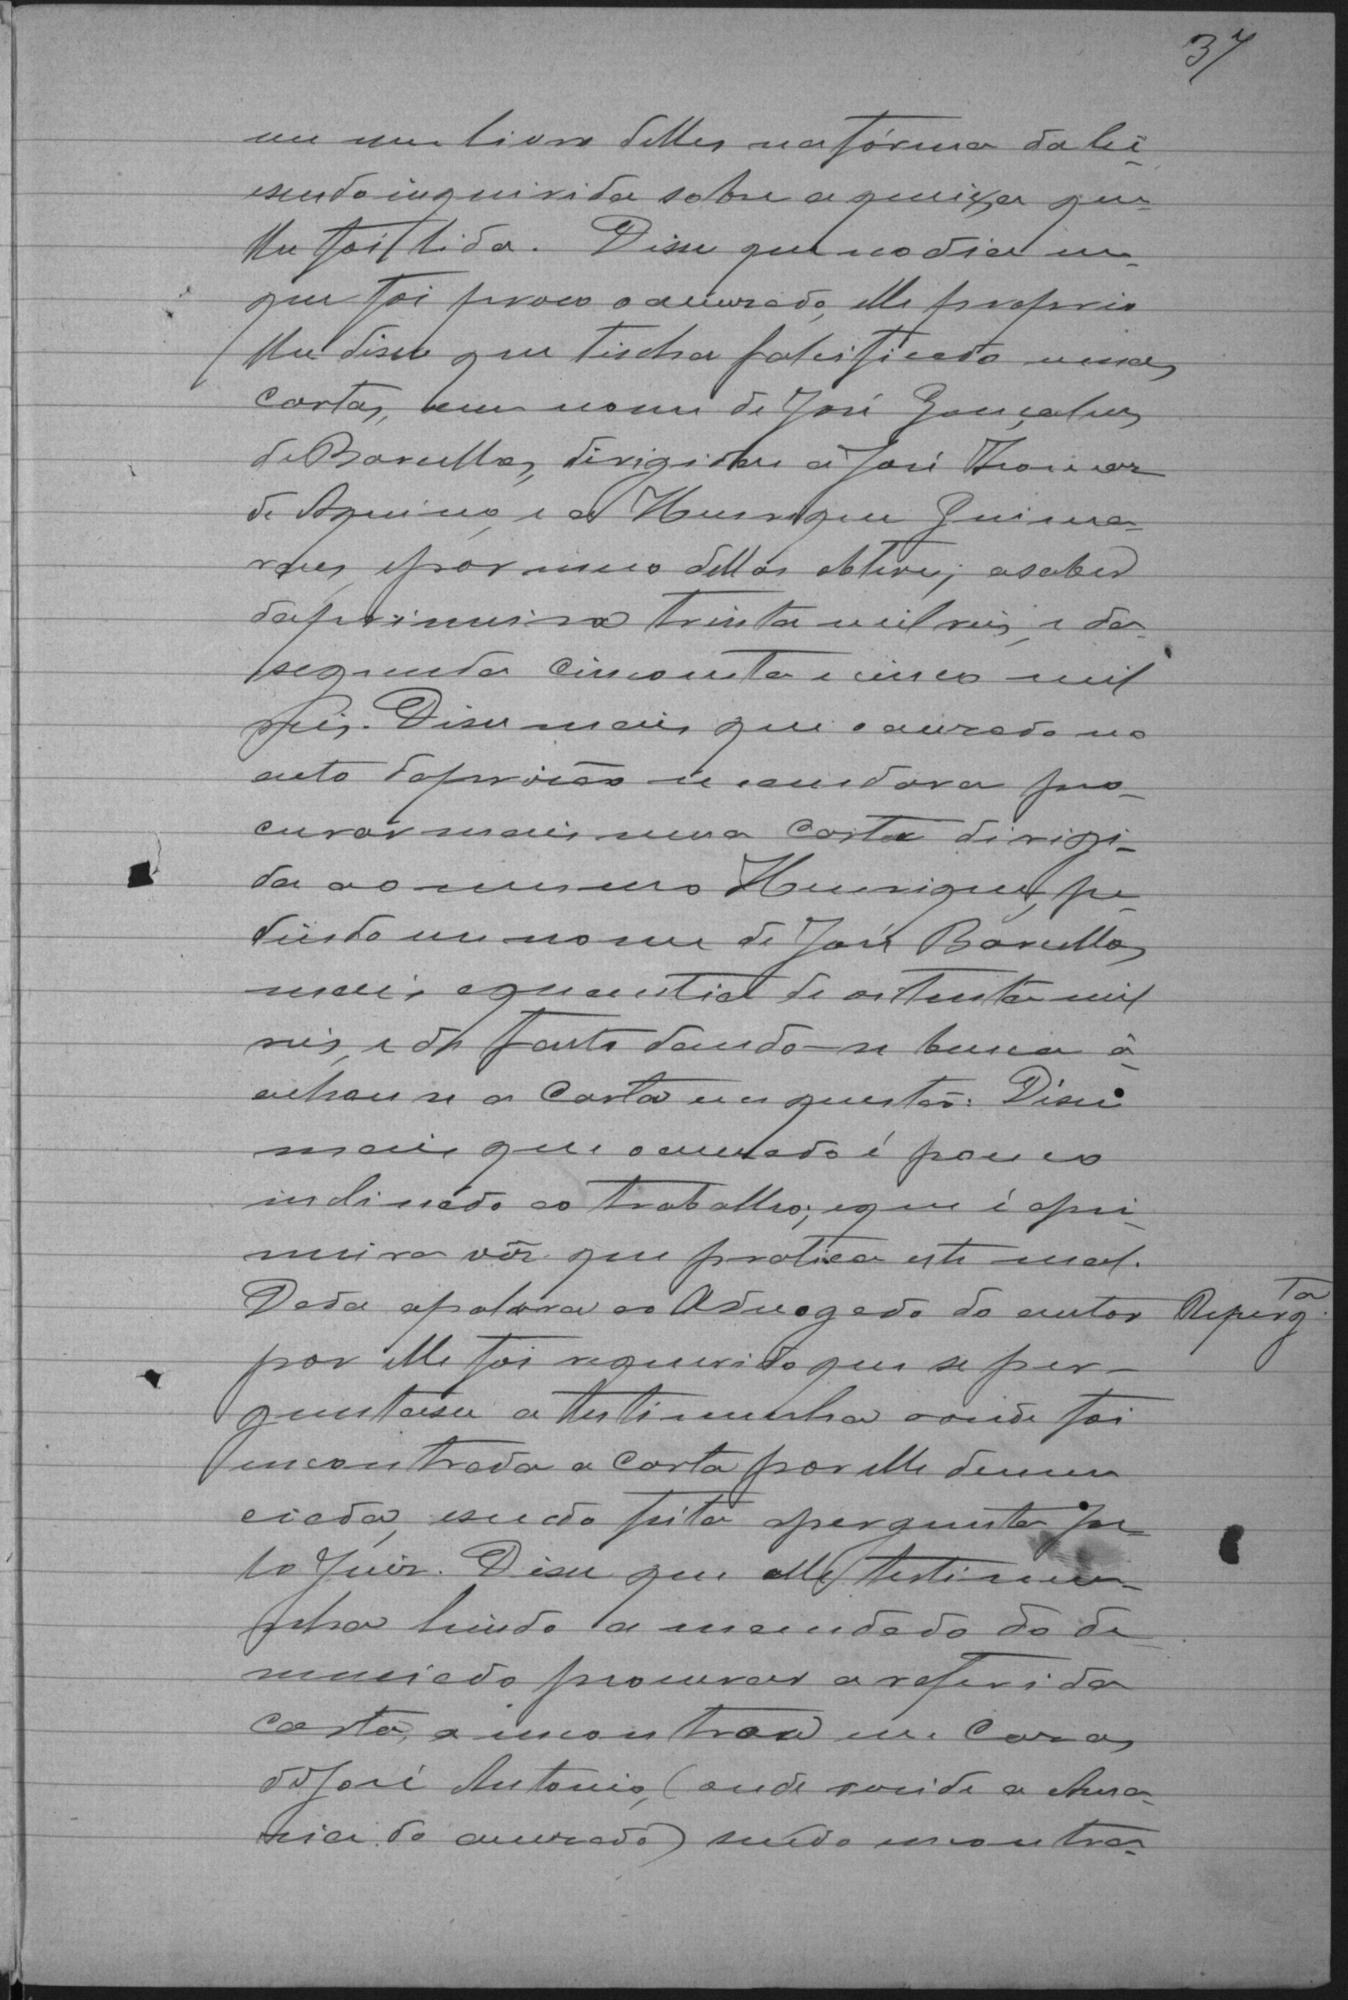 37
em um livro delles na fórma da lei
e sendo inquirida sobre a queixa que
lhe foi lida. Disse que no dia em
que foi prezo o accusado, elle proprio
lhe disse que tinha falsificado umas
cartas, em nome de José Gonçalves
de Barcellos, dirigidas á José Thomaz
de Aquino, e a Henrique Guima-
rães, e por meio dellas obteve; a saber
da primeira trinta mil reis, e da
segunda cincoenta e cinco mil
reis. Disse mais que o accusado no
auto da prisão se mandara pro-
curar mais uma carta dirigi-
da ao mesmo Henrique, pe-
dindo em nome de José Barcellos
mais a quantia de oitenta mil
reis, e de facto dando-se busca
achou-se a carta em questão. Disse
mais que o accusado é pouco
inclinado ao trabalho; e que é a pri-
meira vêz que pratica este mal.
Dada a palavra ao Advogado do autor Reperg.ta
por elle foi requerido que se per-
guntasse a testimunha aonde foi
encontrada a carta por elle denun
ciada, e sendo feita a pergunta pe-
lo Juiz. Disse que elle testimu-
nha hindo a mandado do de-
nunciado procurar a referida
carta, a encontrou em casa
de José Antonio, (onde reside a Ama-
sia do accusado) sendo encontra-